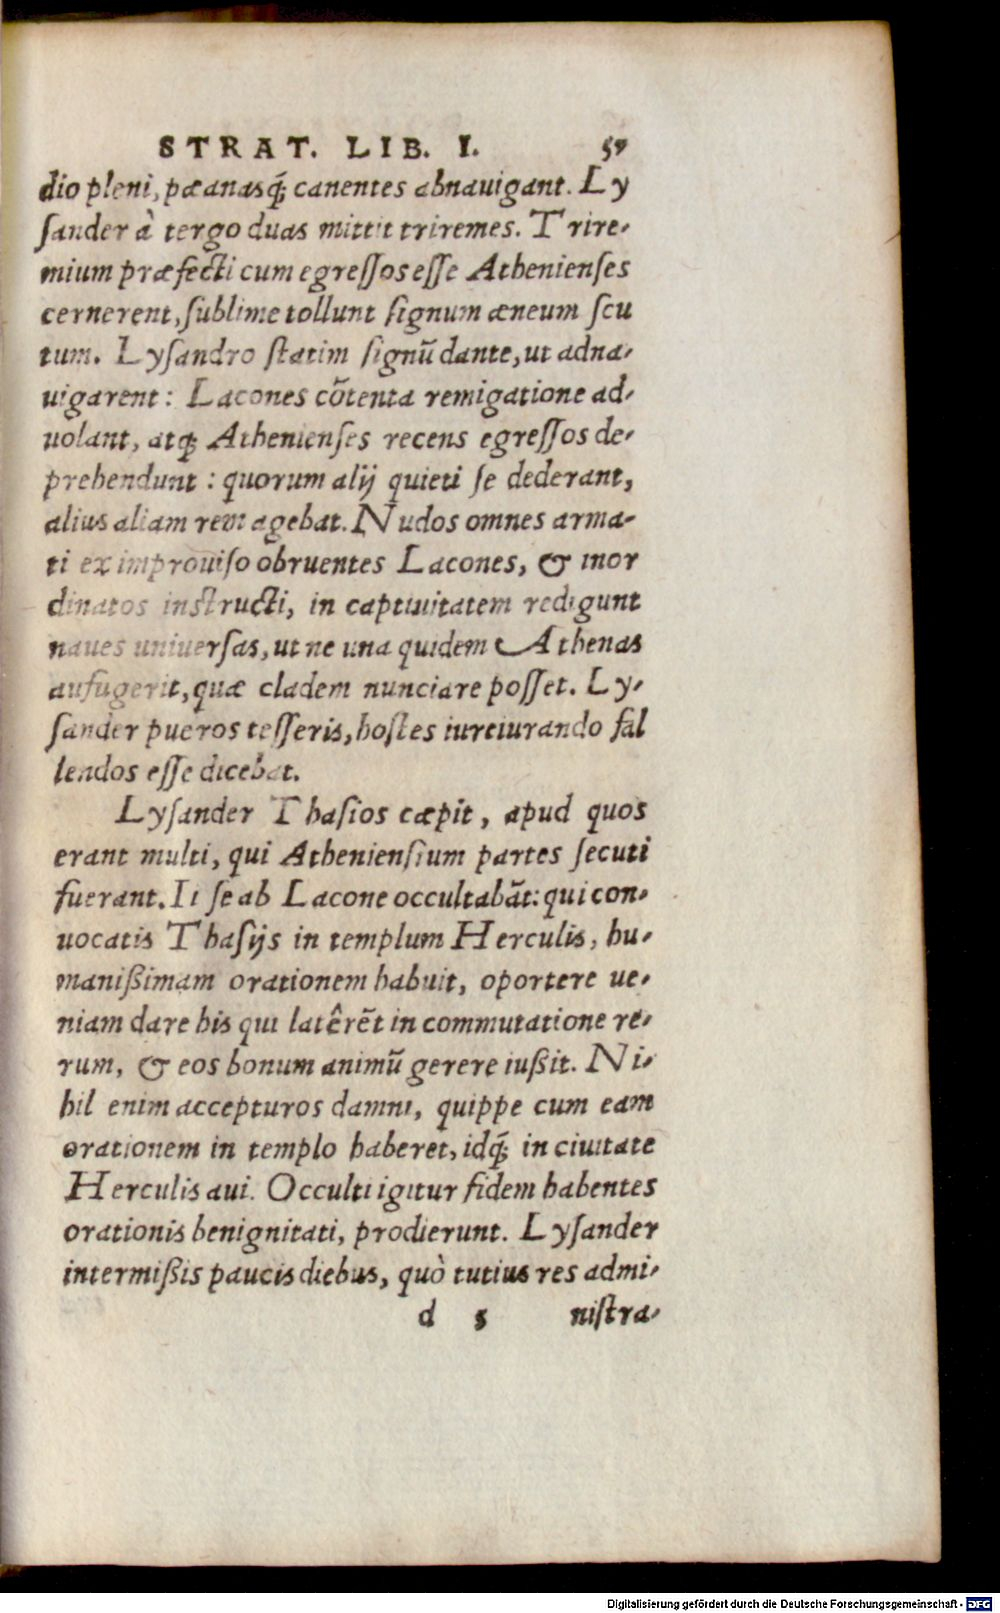 STRAT. LIB. I. 57
dio pleni, pæanasq́; canentes abnauigant. Ly
ſander à tergo duas mittit triremes. Trire-
mium præfecti cum egreſſos eſſe Athenienſes
cernerent, ſublime tollunt ſignum æneum ſcu
tum. Lyſandro ſtatim ſignū dante, ut adna-
uigarent: Lacones cōtenta remigatione ad-
uolant, atq; Athenienſes recens egreſſos de-
prehendunt: quorum alij quieti ſe dederant,
alius aliam rem agebat. Nudos omnes arma-
ti ex improuiſo obruentes Lacones, & inor
dinatos inſtructi, in captiuitatem redigunt
naues uniuerſas, ut ne una quidem Athenas
aufugerit, quæ cladem nunciare poſſet. Ly-
ſander pueros teſſeris, hoſtes iureiurando fal
lendos eſſe dicebat.
Lyſander Thaſios cæpit, apud quos
erant multi, qui Athenienſium partes ſecuti
fuerant. Ii ſe ab Lacone occultabāt: qui con-
uocatis Thaſijs in templum Herculis, hu-
manißimam orationem habuit, oportere ue-
niam dare his qui latêrēt in commutatione re-
rum, & eos bonum animū gerere iußit. Ni-
hil enim accepturos damni, quippe cum eam
orationem in templo haberet, idq́; in ciuitate
Herculis aui. Occulti igitur fidem habentes
orationis benignitati, prodierunt. Lyſander
intermißis paucis diebus, quò tutius res admi-
d 5 niſtra-
Digitalisierung gefördert durch die Deutsche Forschungsgemeinschaft - DFG